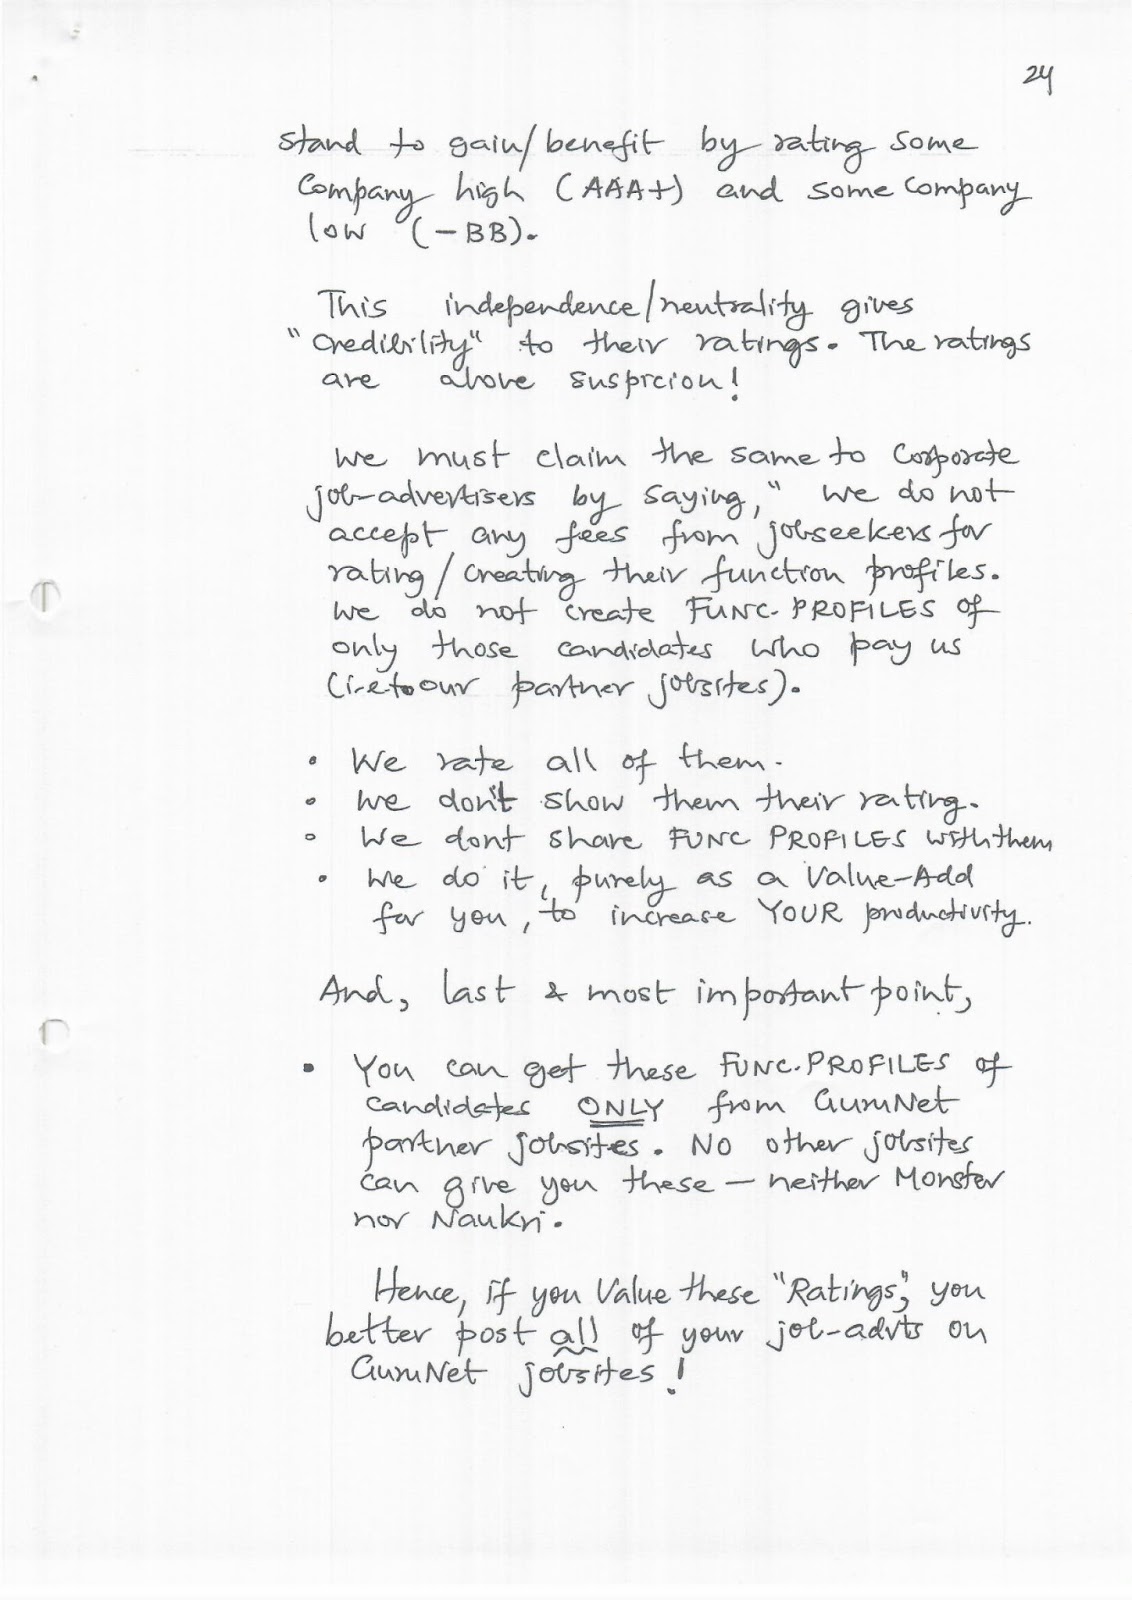 24
stand to gain/benefit by rating some
Company high (AAA+) and some company
low (-BB).
This independence/neutrality gives
"credibility" to their ratings. The ratings
are above suspicion!
We must claim the same to corporate
job-advertisers by saying, "We do not
accept any fees from jobseekers for
rating/creating their function profiles.
We do not create FUNC. PROFILES of
only those candidates who pay us
(i-e to our partner jobsites).
• We rate all of them.
• We don't show them their rating.
• We dont share FUNC PROFILES with them
• We do it, purely as a Value-Add
for you, to increase YOUR productivity.
And, last & most important point,
• You can get these FUNC. PROFILES of
candidates ONLY from GuruNet
partner jobsites. No other jobsites
can give you these — neither Monster
nor Naukri.
Hence, if you Value these "Ratings", you
better post all of your job-advts on
GuruNet jobsites!